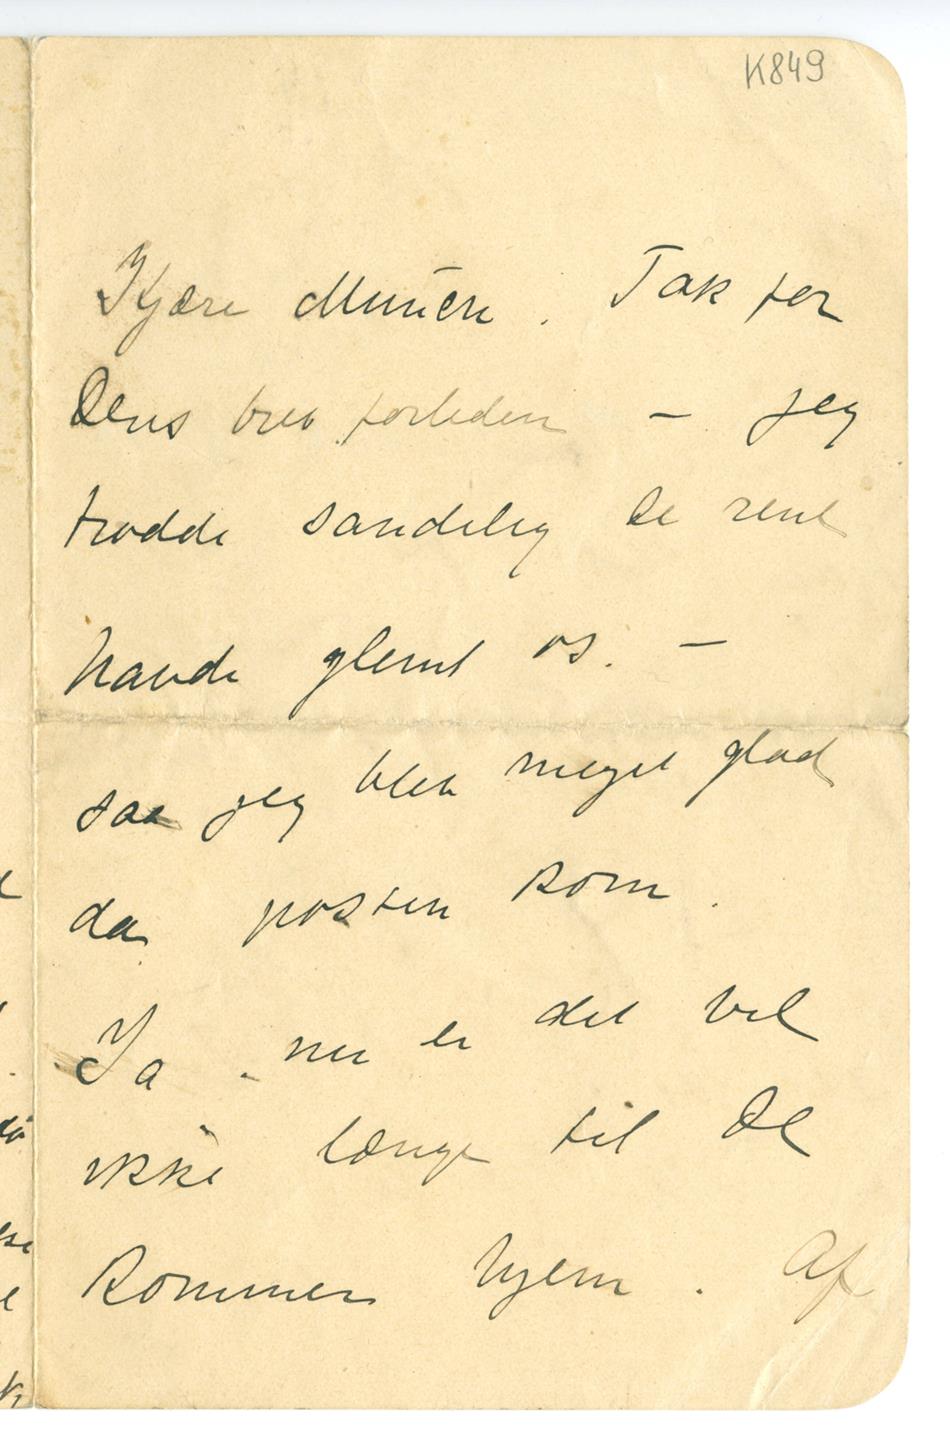 K849
Kjære Munch. Tak for
Deres brev forleden – jeg
trodde sandelig De rent
havde glemt os. –
saa jeg blev meget glad
da posten kom.
Ja – nu er det vel
ikke længe til De
kommer hjem. Af